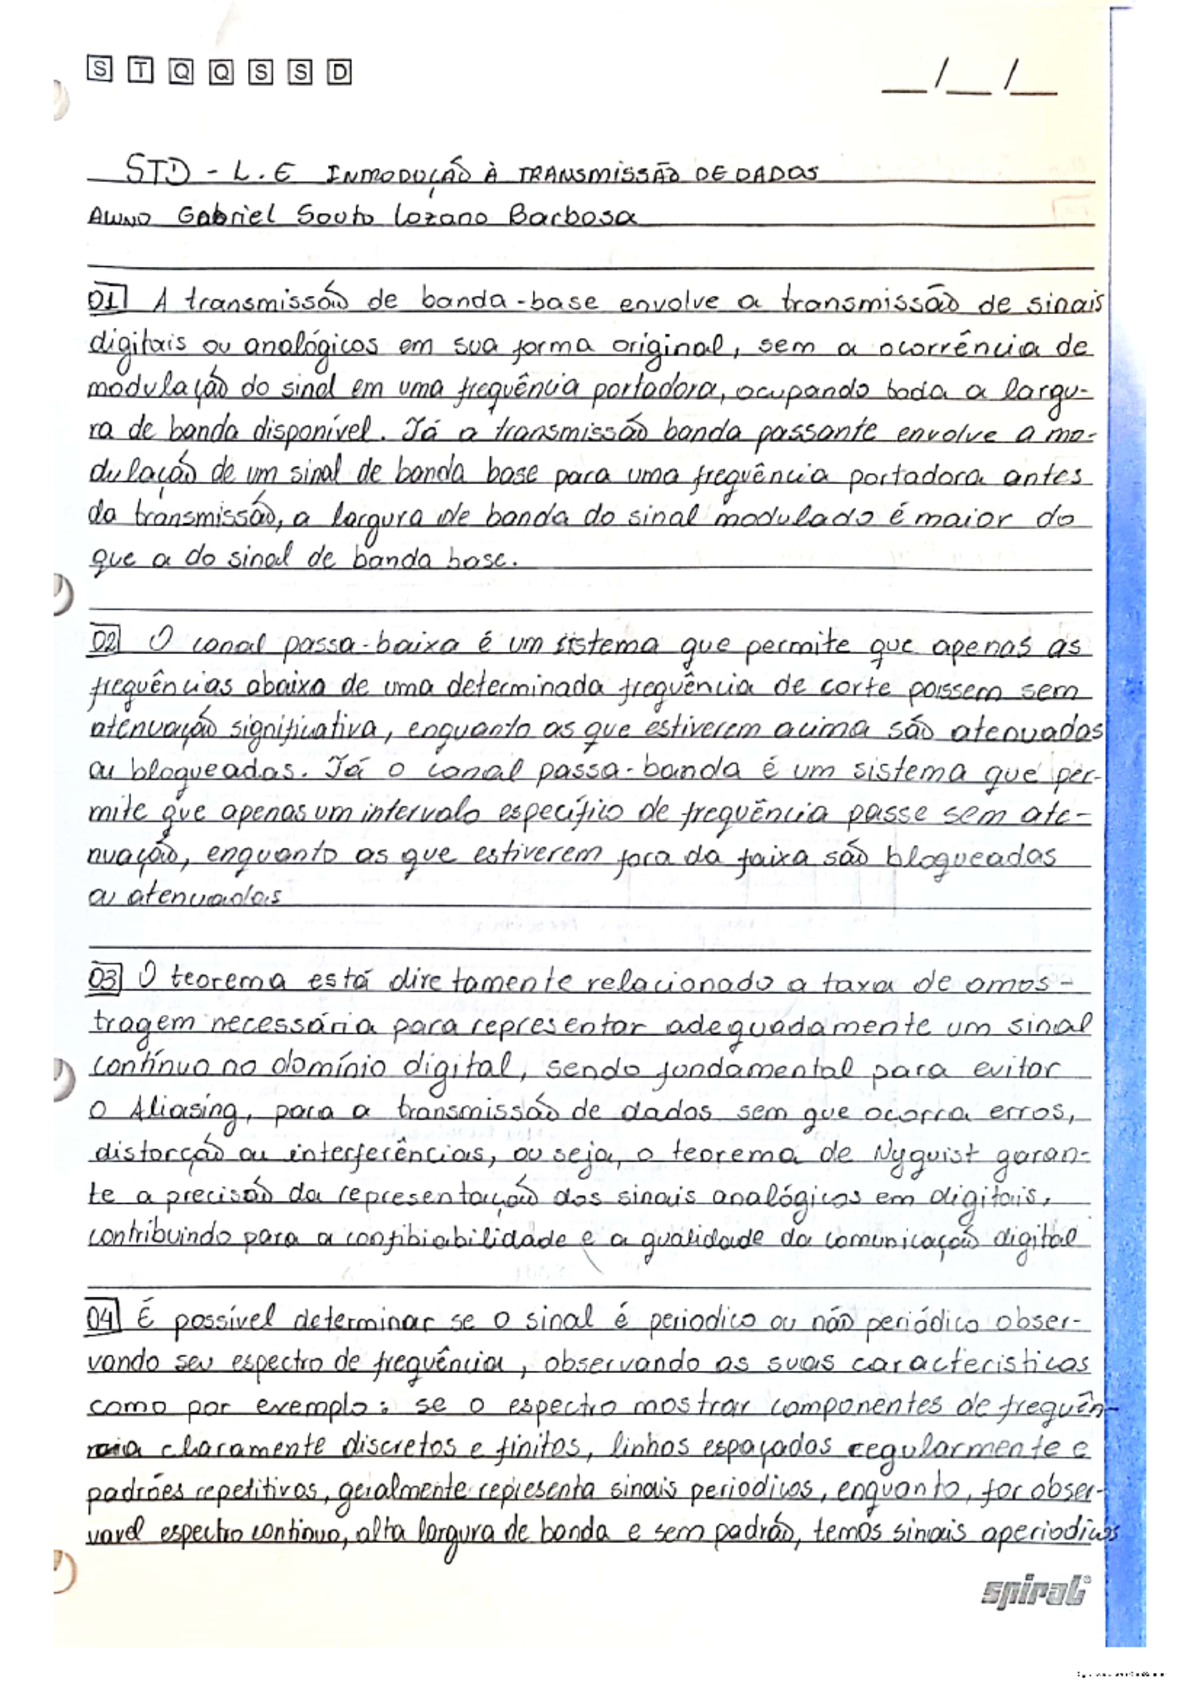 S T Q Q S S D
__/__/__
STD - L.E INTRODUÇÃO À TRANSMISSÃO DE DADOS
ALUNO Gabriel Souto Lozano Barbosa
01 A transmissão de banda-base envolve a transmissão de sinais
digitais ou analógicos em sua forma original, sem a ocorrência de
modulação do sinal em uma frequência portadora, ocupando toda a largu-
ra de banda disponível. Já a transmissão banda passante envolve a mo-
dulação de um sinal de banda base para uma frequência portadora antes
da transmissão, a largura de banda do sinal modulado é maior do
que a do sinal de banda base.
02 O canal passa-baixa é um sistema que permite que apenas as
frequências abaixo de uma determinada frequência de corte passem sem
atenuação significativa, enquanto as que estiverem acima são atenuadas
ou bloqueadas. Já o canal passa-banda é um sistema que per-
mite que apenas um intervalo específico de frequência passe sem ate-
nuação, enquanto as que estiverem fora da faixa são bloqueadas
ou atenuadas
03 O teorema está diretamente relacionado a taxa de amos-
tragem necessária para representar adequadamente um sinal
contínuo no domínio digital, sendo fundamental para evitar
o Aliasing, para a transmissão de dados sem que ocorra erros,
distorção ou interferências, ou seja, o teorema de Nyquist garan-
te a precisão da representação dos sinais analógicos em digitais,
contribuindo para a confibiabilidade e a qualidade da comunicação digital
04 É possível determinar se o sinal é periodico ou não periódico obser-
vando seu espectro de frequência, observando as suas caracteristicas
como por exemplo: se o espectro mostrar componentes de frequên-
cia claramente discretos e finitos, linhas espaçadas regularmente e
padrões repetitivos, geralmente representa sinais periodicos, enquanto, for obser-
vavel espectro continuo, alta largura de banda e sem padrão, temos sinais aperiodicos
spiral